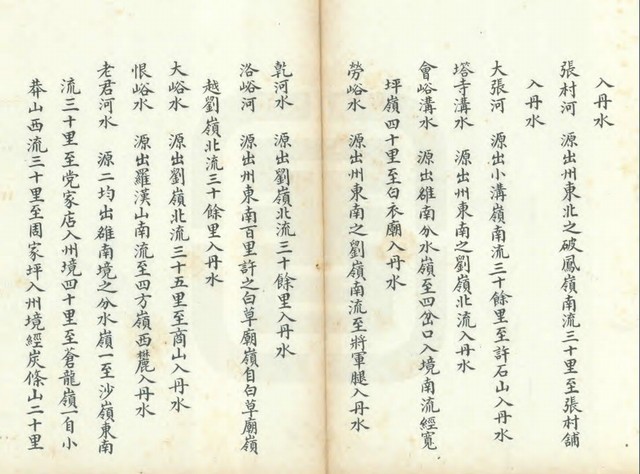 入丹水
張村河　源出州東北之破鳳嶺南流三十里至張村舖
入丹水
大張河　源出小溝嶺南流三十餘里至許石山入丹水
塔寺溝水　源出州東南之劉嶺北流入丹水
會峪溝水　源出雒南分水嶺至四岔口入境南流經寬
坪嶺四十里至白衣廟入丹水
勞峪水　源出州東南之劉嶺南流至將軍腿入丹水
乾河水　源出劉嶺北流三十餘里入丹水
洛峪河　源出州東南百里許之白草廟嶺自白草廟嶺
越劉嶺北流三十餘里入丹水
大峪水　源出劉嶺北流三十五里至商山入丹水
恨峪水　源出羅漢山南流至四方嶺西麓入丹水
老君河水　源二均出雒南境之分水嶺一至沙嶺東南
流三十里至党家店入州境四十里至蒼龍嶺一自小
莽山西流三十里至周家坪入州境經炭條山二十里